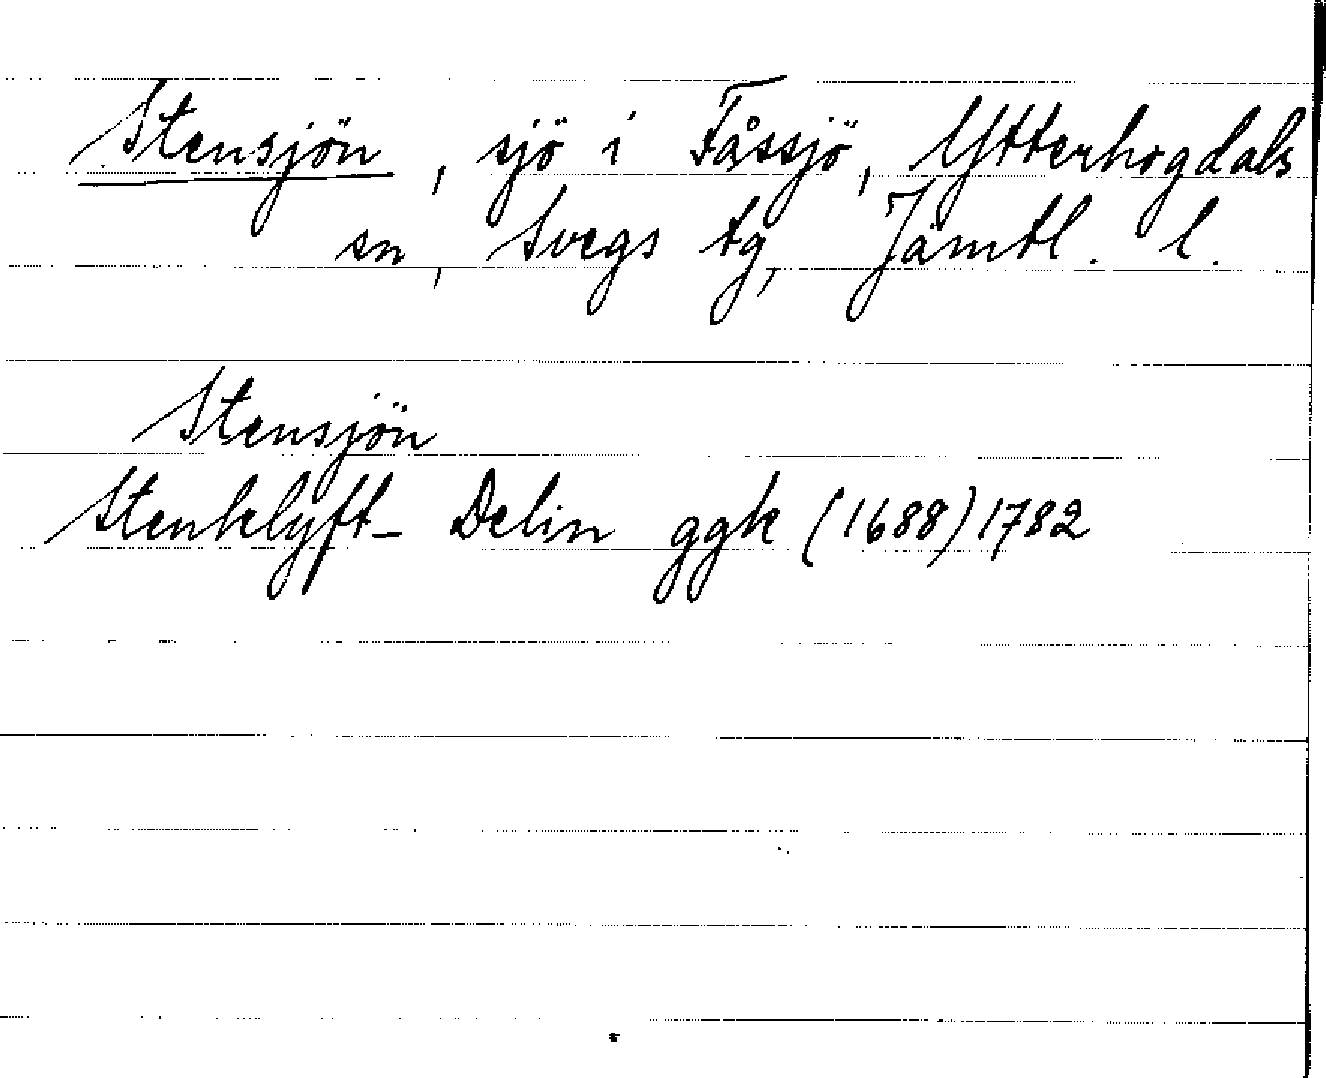 Stensjön, sjö i Fåssjö, Ytterhogdals
sn, Svegs tg, Jämtl. l.
Stensjön
Stenklyft- Delin ggk (1688) 1782